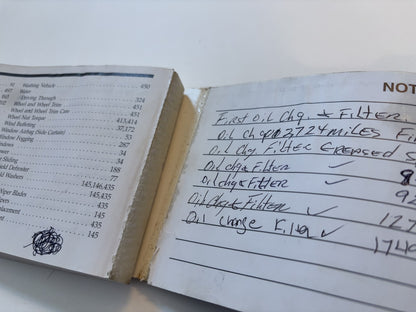 Washing Vehicle 450
Water
Driving Through 324
Wheel and Wheel Trim 451
Wheel and Wheel Trim Care 451
Wheel Nut Torque 413,414
Wind Buffeting 77
Window Airbag (Side Curtain) 37,172
Window Fogging 53
Windows 287
34
Sliding 34
Defender 188
Washers
145,146,435
Wiper Blades 435
435
145
435
145
NOT
First Oil Chg & Filter.
Oil chg 03724 miles
Oil Chg Filter Greased
Oil chg & Filter ✓
Oil chg & Filter ✓
Oil Chg & Filter ✓ 127
Oil change Filter ✓ 1740